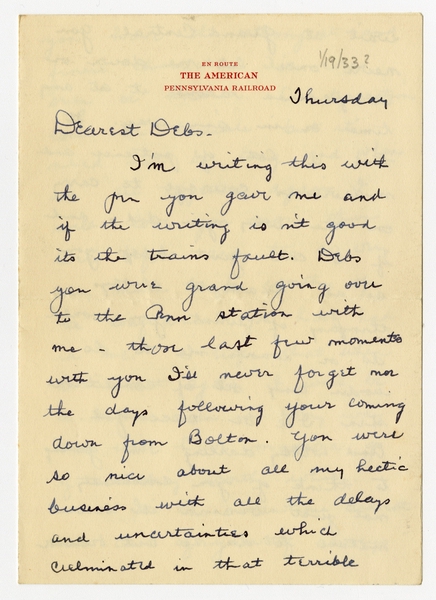 EN ROUTE
THE AMERICAN
PENNSYLVANIA RAILROAD
1/19/33?
Thursday
Dearest Debs-
I'm writing this with
the pen you gave me and
if the writing isn't good
its the trains fault. Debs
you were grand going over
to the Penn station with
me - those last few moments
with you I'll never forget nor
the days following your coming
down from Bolton. You were
so nice about all my hectic
business with all the delays
and uncertainties which
culminated in that terrible